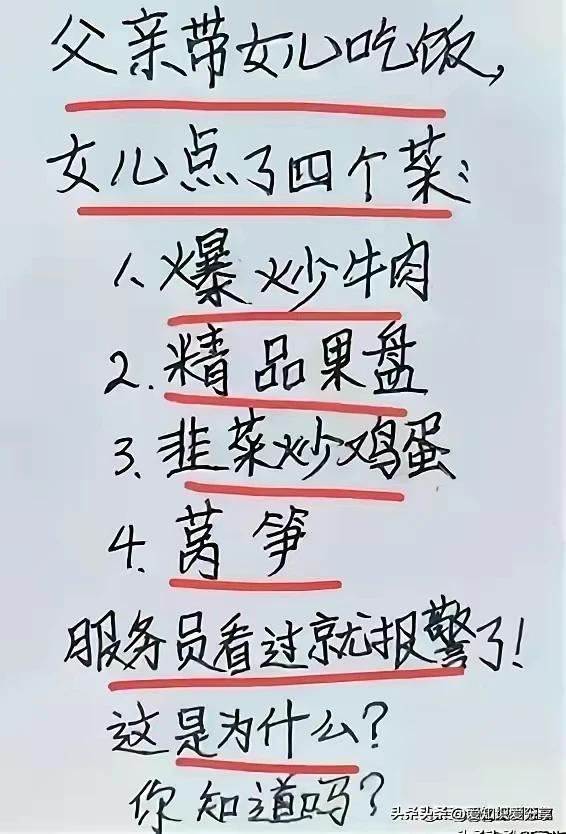 父亲带女儿吃饭,
女儿点了四个菜:
1、爆炒牛肉
2.精品果盘
3.韭菜炒鸡蛋
4.莴笋
服务员看过就报警了!
这是为什么?
你知道吗?
头条头条@爱知识爱分享